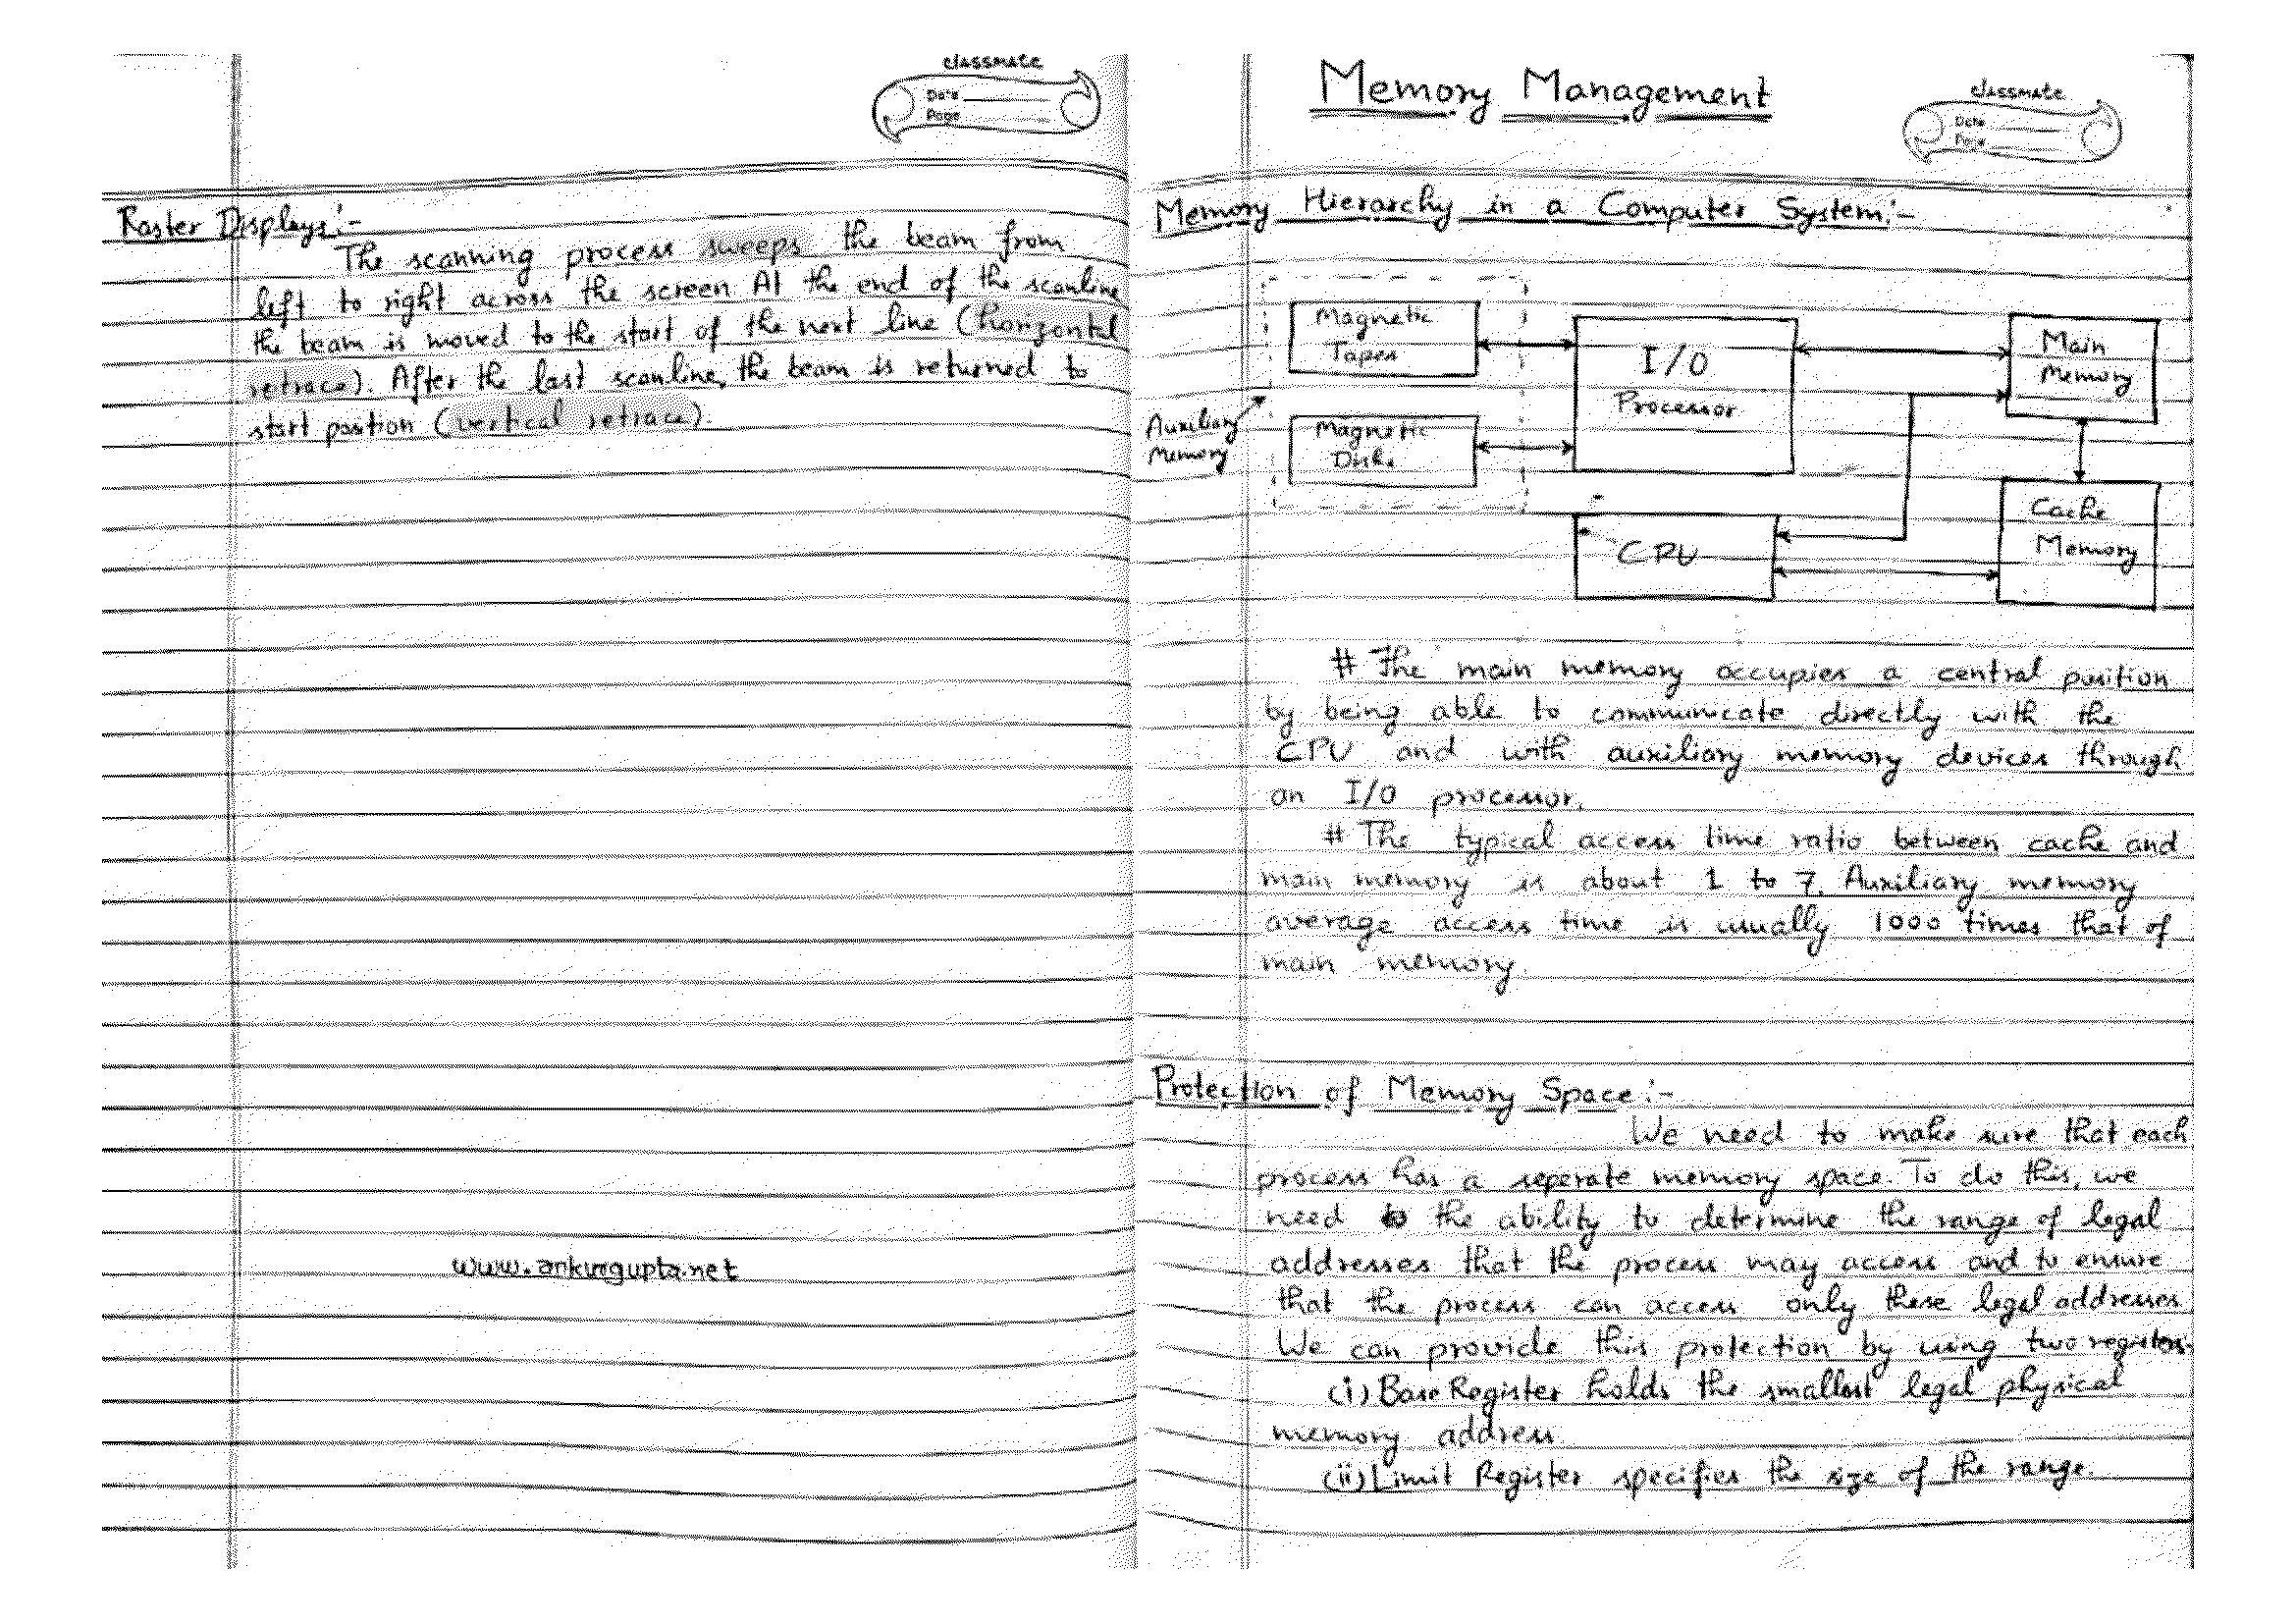 classmate
Date
Page
Raster Displays:-
The scanning process sweeps the beam from
left to right across the screen At the end of the scanline
the beam is moved to the start of the next line (horizontal
retrace). After the last scanline, the beam is returned to
start position (vertical retrace).
www.ankurgupta.net
Memory Management
classmate
Date
Page
Memory Hierarchy in a Computer System:-
Magnetic
Tapes
I/O
Processor
Main
Memory
Auxiliary
Memory
Magnetic
Disks
CPU
Cache
Memory
# The main memory occupies a central position
by being able to communicate directly with the
CPU and with auxiliary memory devices through
an I/O processor.
# The typical access time ratio between cache and
main memory is about 1 to 7. Auxiliary memory
average access time is usually 1000 times that of
main memory.
Protection of Memory Space:-
We need to make sure that each
process has a seperate memory space. To do this, we
need the ability to determine the range of legal
addresses that the process may access and to ensure
that the process can access only these legal addresses.
We can provide this protection by using two registers.
(i) Base Register holds the smallest legal physical
memory address.
(ii) Limit Register specifies the size of the range.